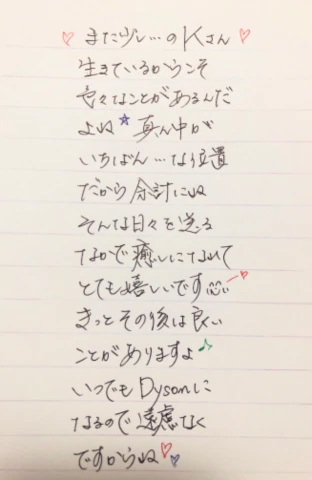 ♡ また少し…のKさん ♡
生きているからこそ
色々なことがあるんだ
よね☆ 真ん中が
いちばん…な位置
だから余計にね
そんな日々を送る
なかで癒しになれて
とても嬉しいです♡
きっとその後は良い
ことがありますよ♪
いつでもDysonに
なるので遠慮なく
ですからね♡♡